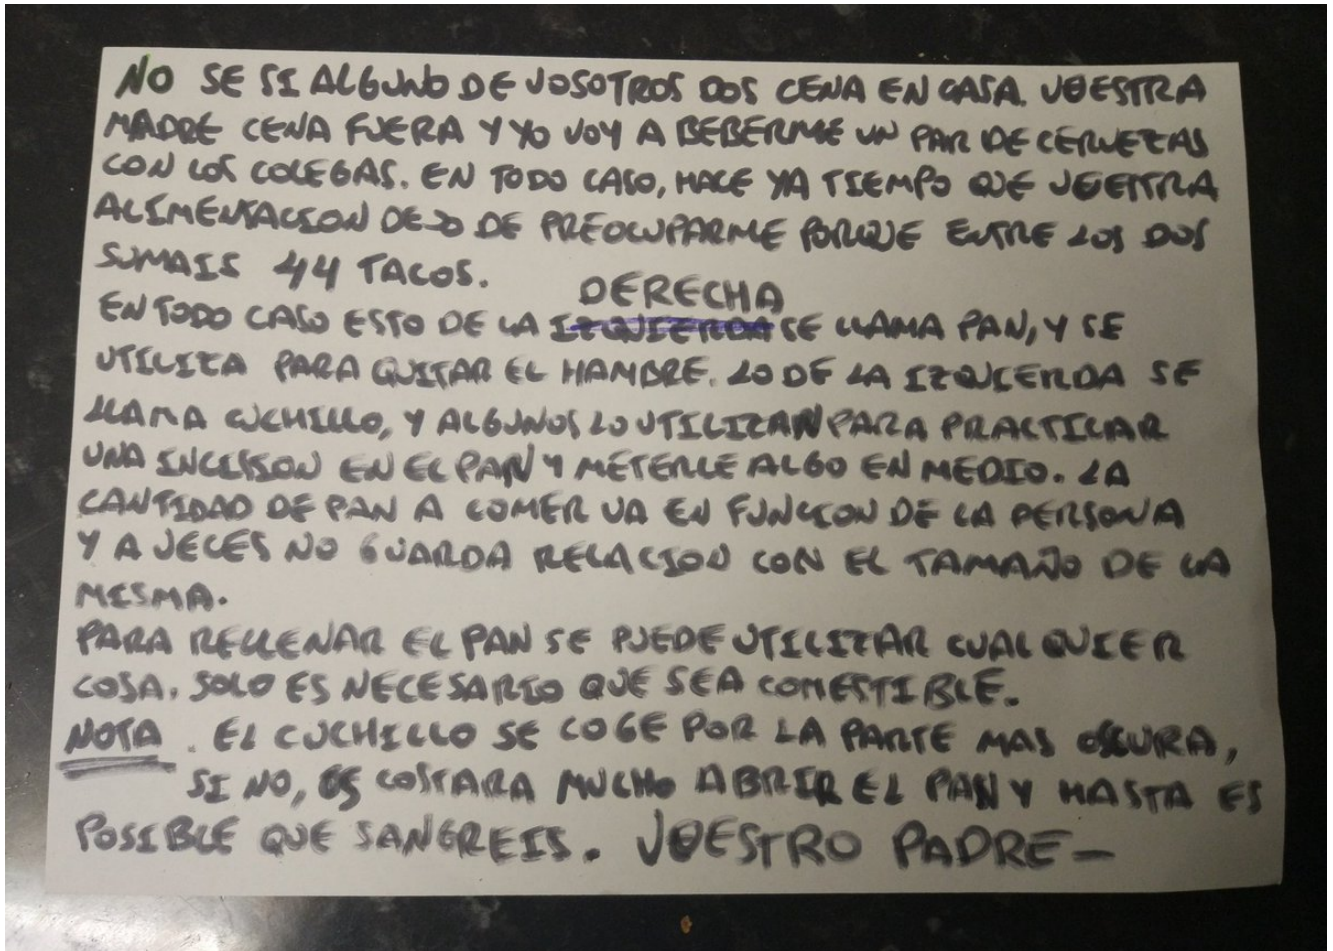 NO SE SI ALGUNO DE VOSOTROS DOS CENA EN CASA. VUESTRA
MADRE CENA FUERA Y YO VOY A BEBERME UN PAR DE CERVEZAS
CON LOS COLEGAS. EN TODO CASO, HACE YA TIEMPO QUE VUESTRA
ALIMENTACION DEJO DE PREOCUPARME PORQUE ENTRE LOS DOS
SUMAIS 44 TACOS.
DERECHA
EN TODO CASO ESTO DE LA IZQUIERDA SE LLAMA PAN, Y SE
UTILIZA PARA QUITAR EL HAMBRE. LO DE LA IZQUIERDA SE
LLAMA CUCHILLO, Y ALGUNOS LO UTILIZAN PARA PRACTICAR
UNA INCISION EN EL PAN Y METERLE ALGO EN MEDIO. LA
CANTIDAD DE PAN A COMER VA EN FUNCION DE LA PERSONA
Y A VECES NO GUARDA RELACION CON EL TAMAÑO DE LA
MISMA.
PARA RELLENAR EL PAN SE PUEDE UTILIZAR CUALQUIER
COSA. SOLO ES NECESARIO QUE SEA COMESTIBLE.
NOTA. EL CUCHILLO SE COGE POR LA PARTE MAS OSCURA,
SI NO, OS COSTARA MUCHO ABRIR EL PAN Y HASTA ES
POSIBLE QUE SANGREIS. VUESTRO PADRE -